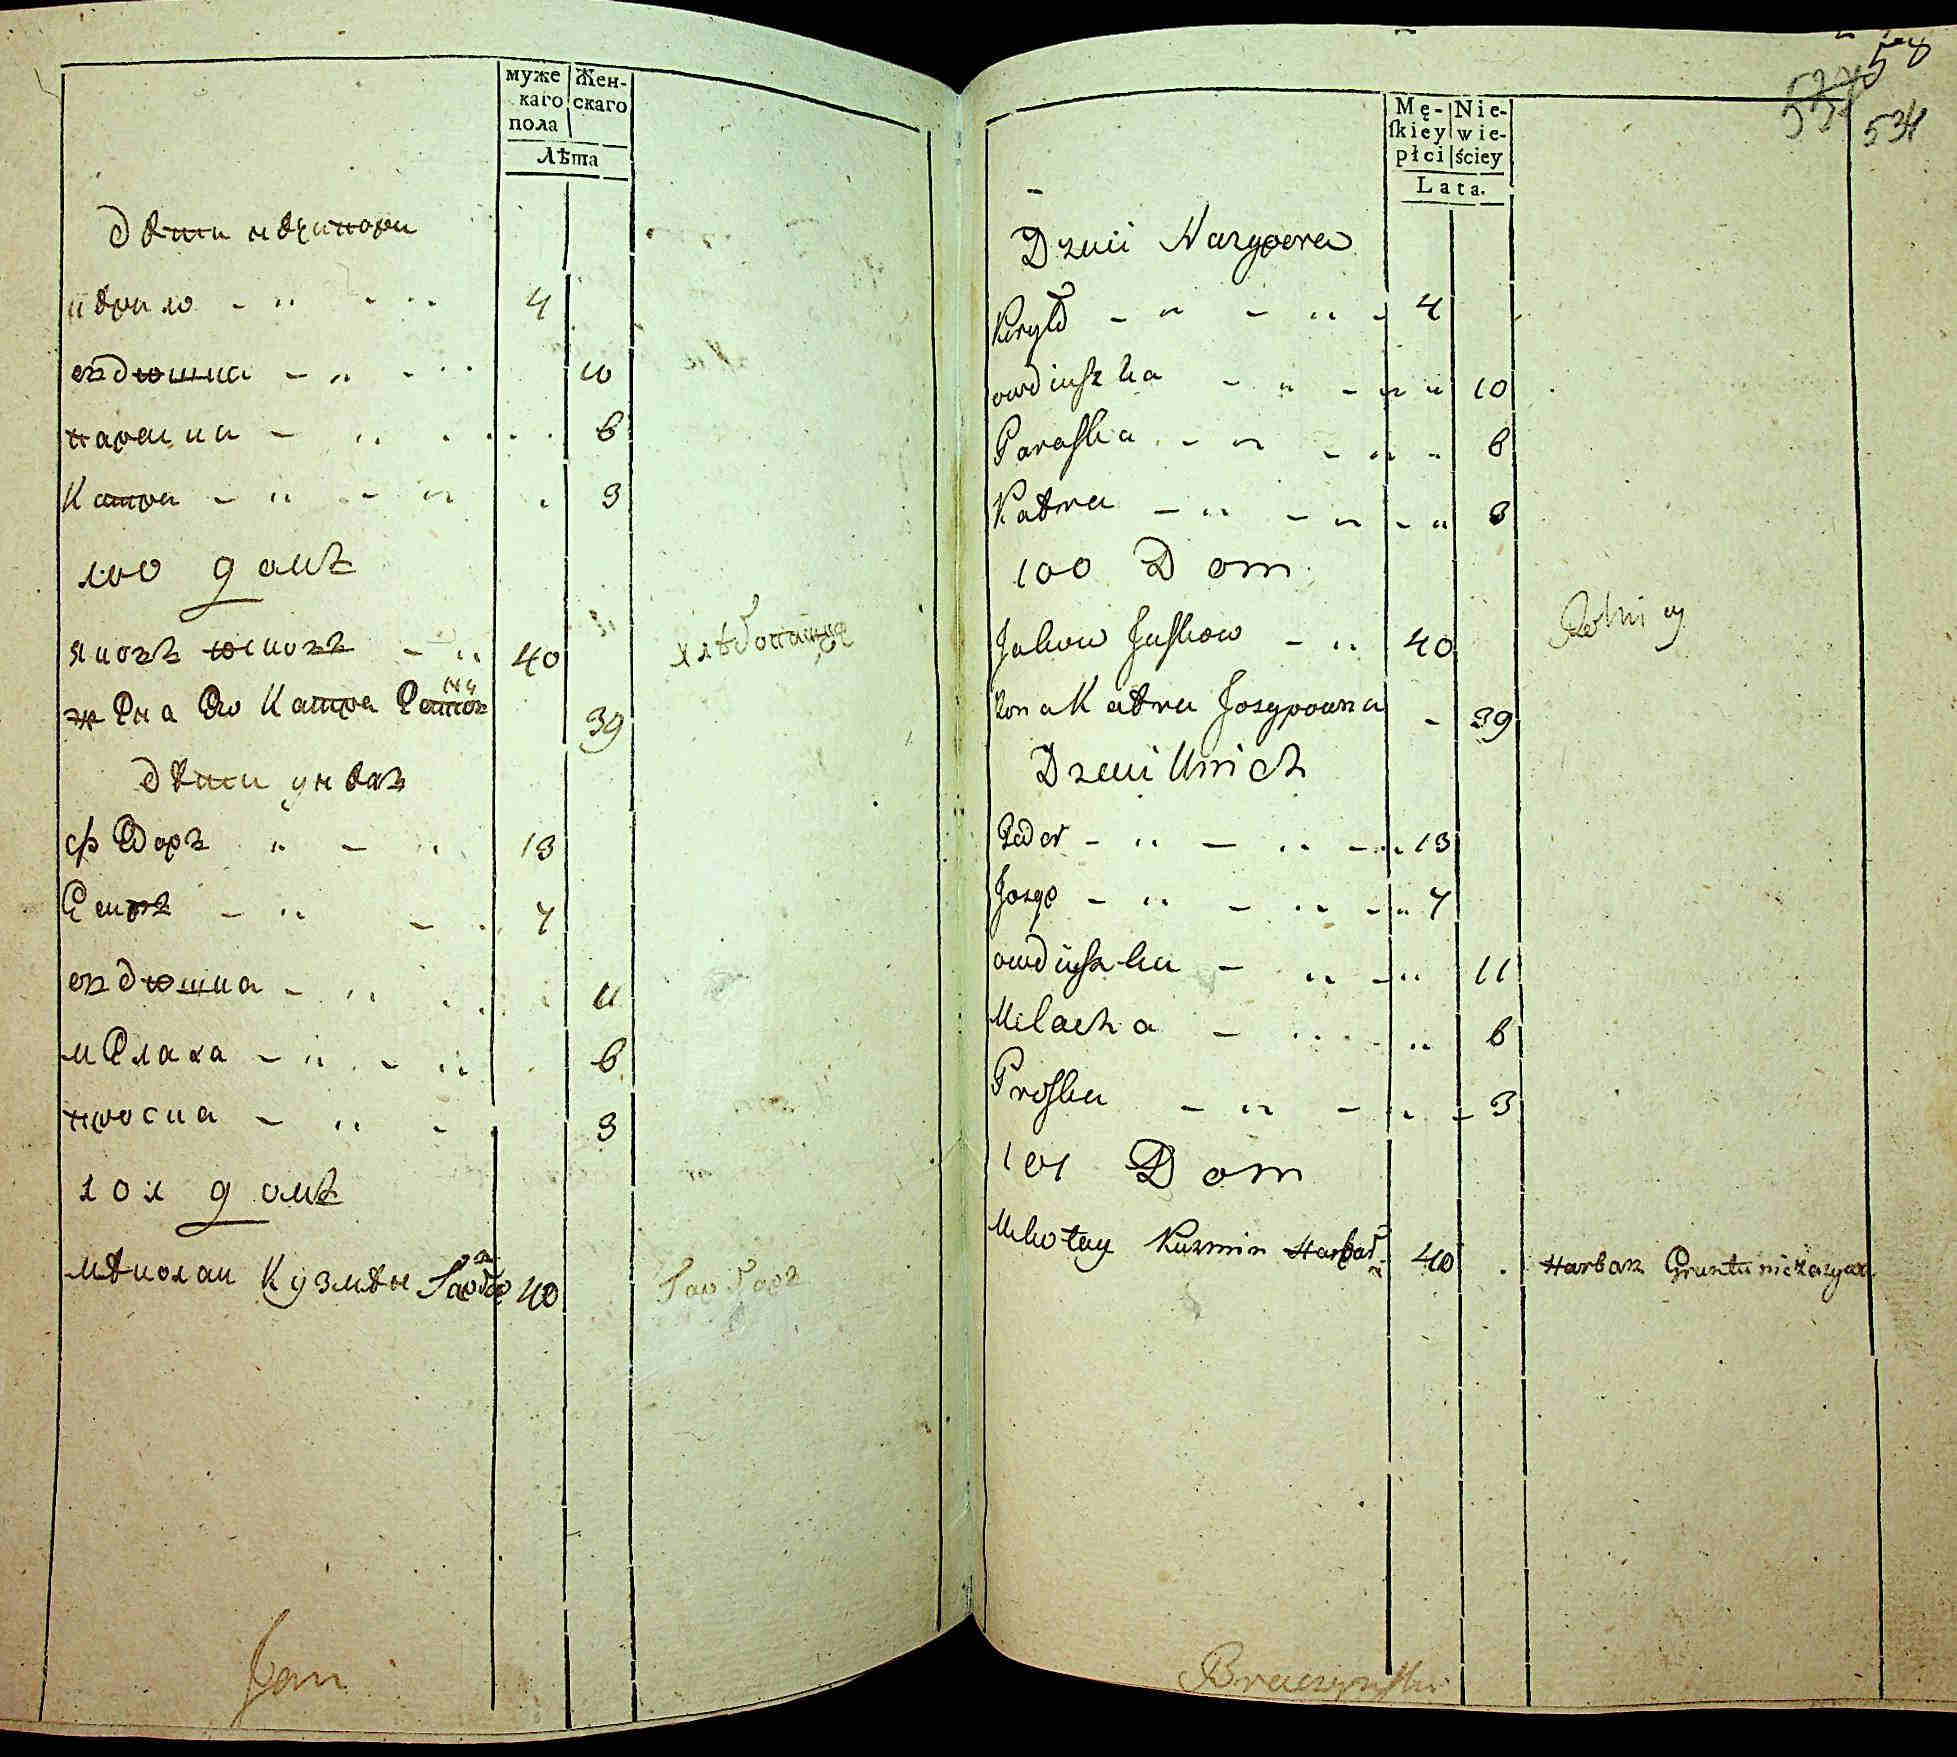 муже Жен-
каго скаго
пола
лѣта
дѣти нѣчипори
кѣрило 4
овдюшка 10
параски 6
Катра 3
100 домъ
яковъ юсковъ 40 хлѣбопашцъ
жена Его Катра Есипов
на 39
дѣти у нѣхъ
фѣдоръ 13
Есипъ 7
овдюшка 11
мелаха 6
проска 3
101 домъ
мѣколаи Кузмѣн Гарбар 40 Гарбарь
Jan
58
534
Mę- Nie-
ſkiey wie-
płci ściey
Lata.
Dzieci Naszypera
Keryło 4
owdiuszka 10
Paraska 6
Katra 3
100 Dom
Jakow Juskow 40 Rolniey
Zona Katra Jozypowna 39
Dzieci Unich
Fedor 13
Jozyp 7
owdiuszka 11
Melacha 6
Proska 3
101 Dom
Mikołay Kuzmin Harbarz 40 Harbarz Gruntu nie